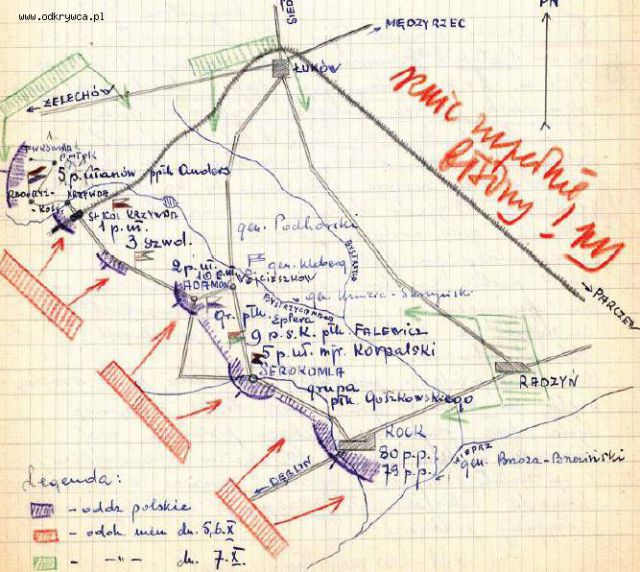 www.odkrywca.pl
SIED
PN
MIĘDZYRZEC
ŁUKÓW
ŻELECHÓW
5 p. ułanów płk Anders
KRZYWDA
St. KOL KRZYWDA
1 p. uł.
3 szwol.
gen. Podhorski
2 p. uł.
10 p. uł.
WOJCIESZKÓW
gen. Kleeberg
ADAMÓW
BYSTRZYCA
gr. płk. Eplera
9 p. s. K. płk FALEWICZ
5 p. uł. mjr. Korpalski
SEROKOMLA
grupa
płk. Gorzkowskiego
PARCZEW
RADZYŃ
KOCK
80 p.p.
79 p.p.
WIEPRZ
gen. Brzoza-Brzeziński
DĘBLIN
Legenda:
- oddz polskie
- oddz. niem dn. 5,6.X
- -"- dn. 7.X.